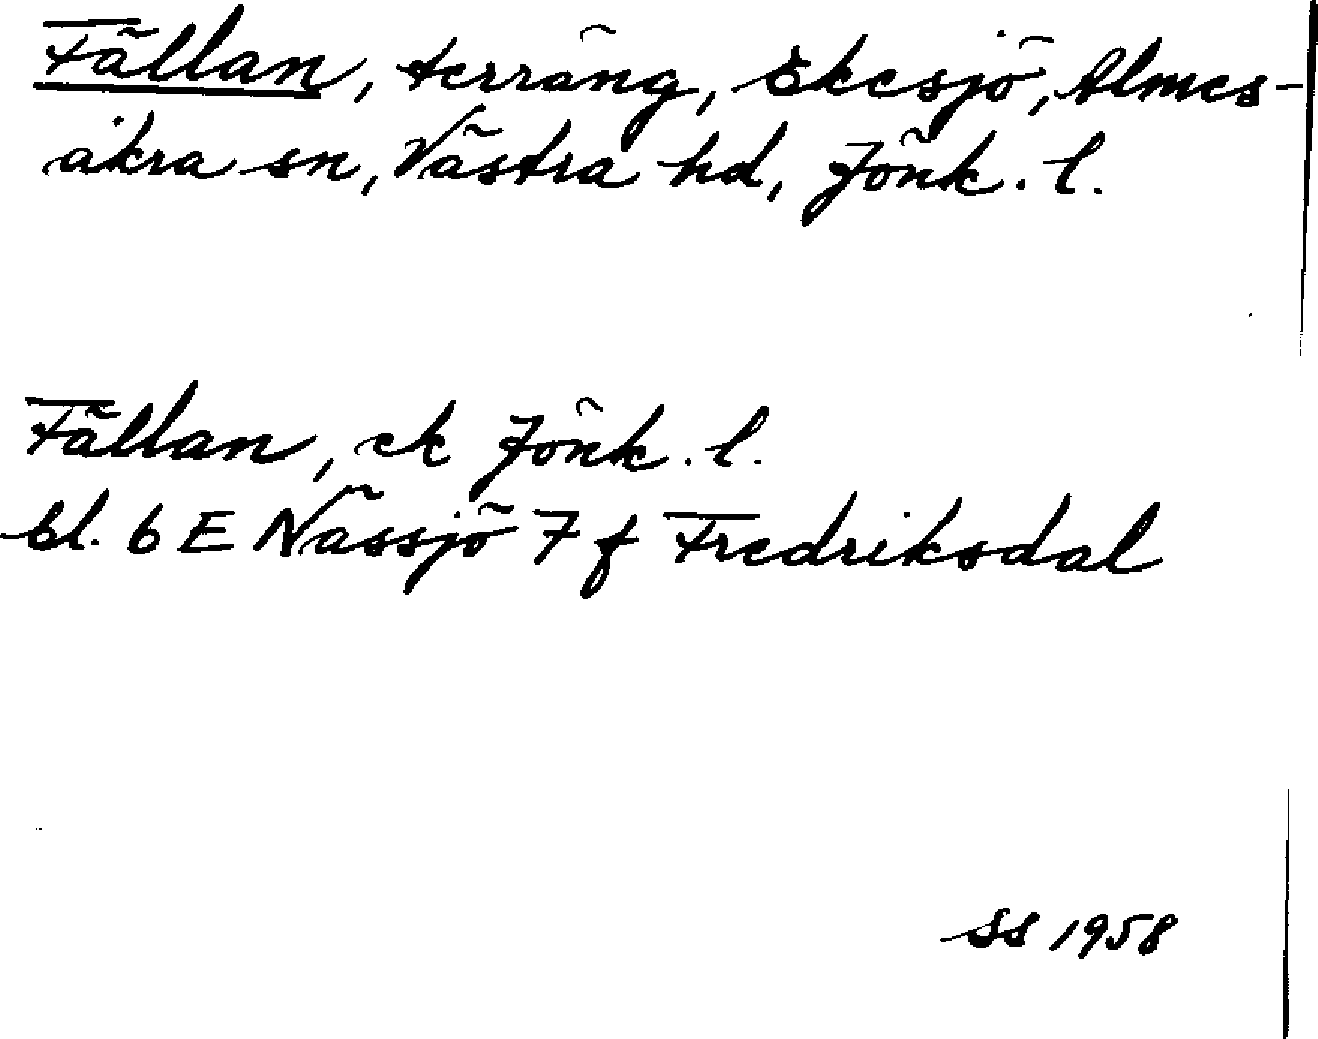 Fällan, terräng, Ekesjö, Almes-
åkra sn, Västra hd, Jönk. l.
Fällan, ek Jönk. l.
bl. 6 E Nässjö 7 f Fredriksdal
SS 1958